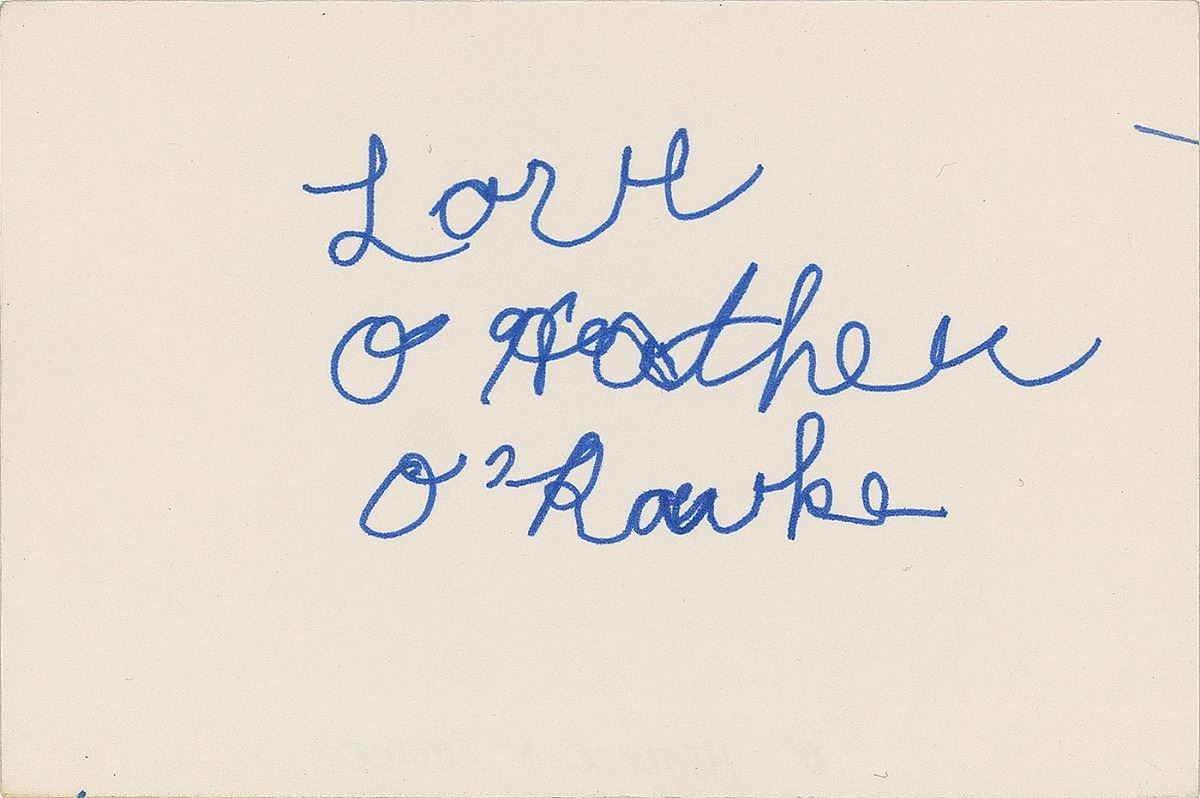 Love
O Heather
O'Rourke